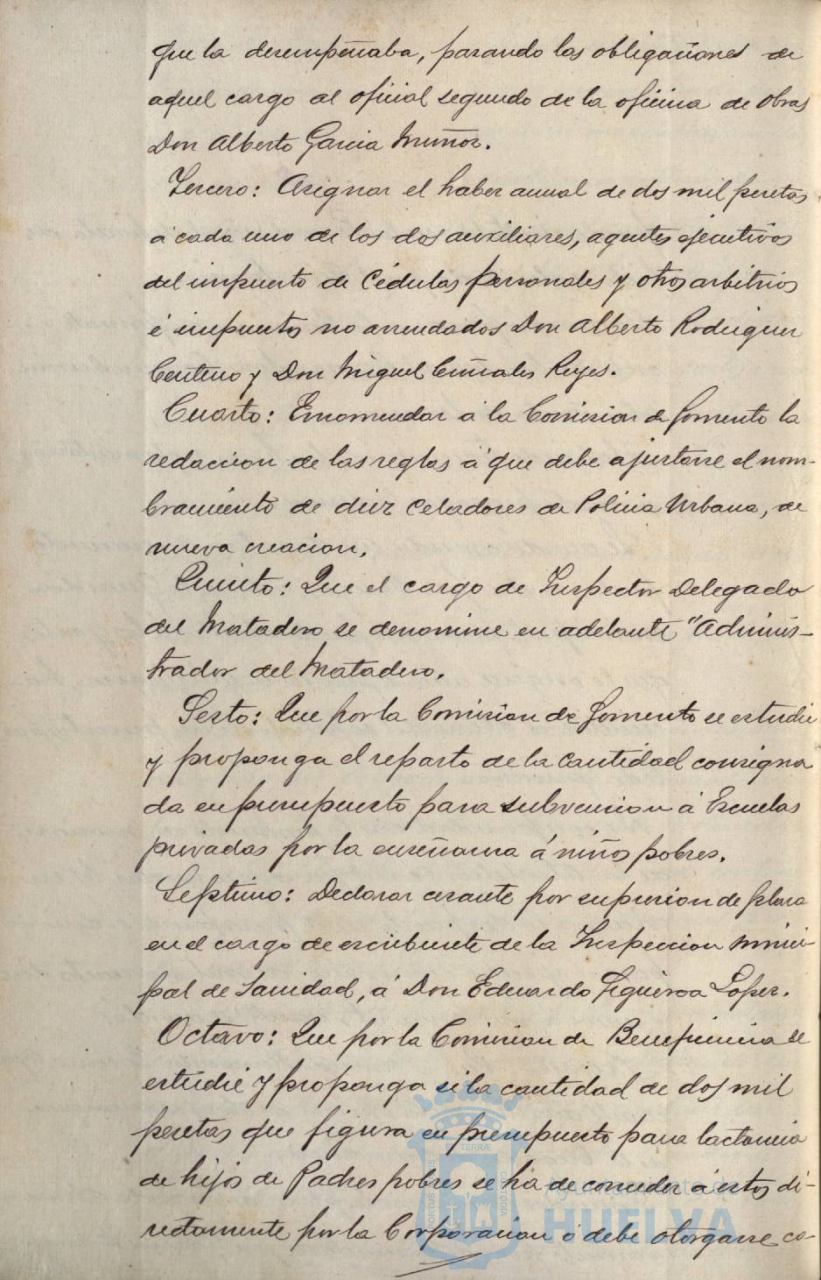 que la desempeñaba, pasando las obligaciones de
aquel cargo al oficial segundo de la oficina de obras
Don Alberto Garcia Muñoz.
Tercero: Asignar el haber anual de dos mil pesetas
á cada uno de los dos auxiliares, agentes ejecutivos
del impuesto de Cédulas personales y otros arbitrios
é impuestos no arrendados Don Alberto Rodriguez
Centeno y Don Miguel Reyes.
Cuarto: Encomendar á la Comision de fomento la
redaccion de las reglas á que debe ajustarse el nom-
bramiento de diez Celadores de Policia Urbana, de
nueva creacion.
Quinto: Que el cargo de Inspector Delegado
del Matadero se denomine en adelante "Adminis-
trador del Matadero.
Sesto: Que por la Comision de fomento se estudie
y proponga el reparto de la cantidad consigna
da en presupuesto para subvencion á Escuelas
privadas por la enseñanza á niños pobres.
Septimo: Declarar cesante por supresion de plaza
en el cargo de escribiente de la Inspeccion munici-
pal de Sanidad, á Don Eduardo Figueroa Lopez.
Octavo: Que por la Comision de Beneficencia se
estudie y proponga si la cantidad de dos mil
pesetas que figura en presupuesto para lactancia
de hijos de Padres pobres se ha de conceder á estos di-
rectamente por la Corporacion ó debe otorgarse co-
HUELVA